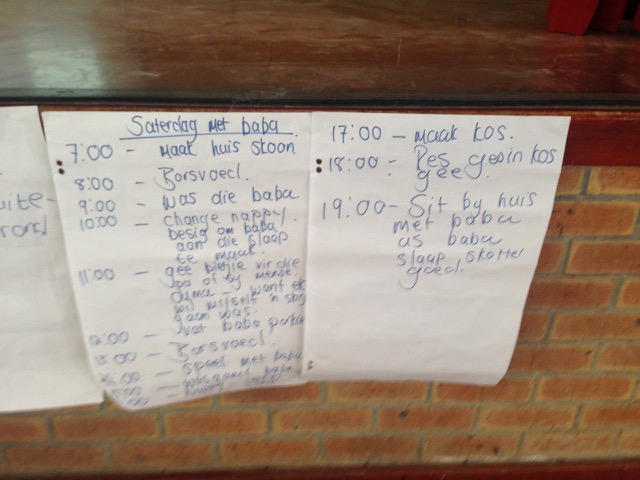 uite-
rond
Saterdag met baba
7:00 - Maak huis skoon
8:00 - Borsvoed.
9:00 - Was die baba
10:00 - change nappy.
besig om baba
aan die slaap
te maak.
11:00 - gee bietjie vir die
pa of by mense.
Ouma - want ek
wil myself 'n slag
gaan was.
vat baba
12:00 - Borsvoed.
- speel met baba
baba
17:00 - Maak kos.
18:00 - Res gesin kos
gee.
19:00 - Sit by huis
met baba
as baba
slaap skottel
goed.